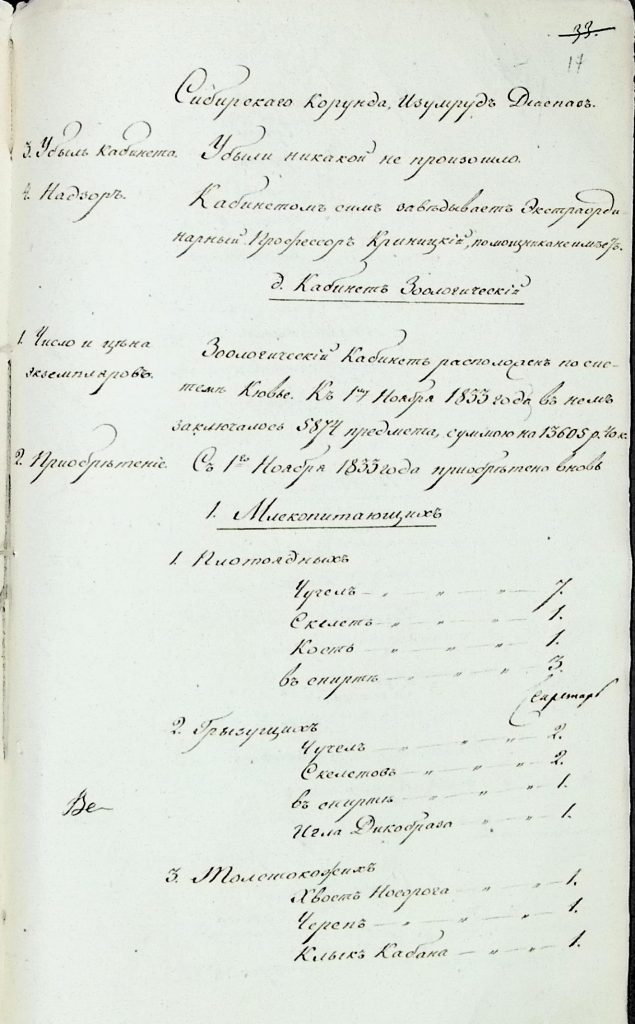 33.
17
Сибирскаго Корунда, Изумрудъ Діаспавъ.
3. Убыль Кабинета. Убыли никакой не произошло.
4. Надзоръ. Кабинетомъ симъ завѣдываетъ Экстраорди-
нарный Профессоръ Криницкій, помощника не имѣетъ.
д. Кабинетъ Зоологическій
1. Число и цѣна Зоологическій Кабинетъ расположенъ по сис-
экземпляровъ. темѣ Кювье. Къ 1му Ноября 1833 года въ немъ
заключалось 5874 предмета, суммою на 13605 р. 40 к.
2. Приобрѣтеніе. Съ 1го Ноября 1833 года приобрѣтено вновь
1. Млекопитающихъ
1. Плотоядныхъ
Чучелъ — „ „ „ 7.
Скелетъ — „ „ „ 1.
Кость — „ „ „ 1.
въ спиртѣ — „ „ „ 3.
Секретарь
2. Грызущихъ
Чучелъ — „ „ „ 2.
Скелетовъ „ „ „ 2.
въ спиртѣ „ „ „ 1.
Ве
Игла Дикобраза „ „ 1.
3. Толстокожихъ
Хвостъ Носорога — „ „ 1.
Черепъ — „ „ „ 1.
Клыкъ Кабана — „ „ 1.